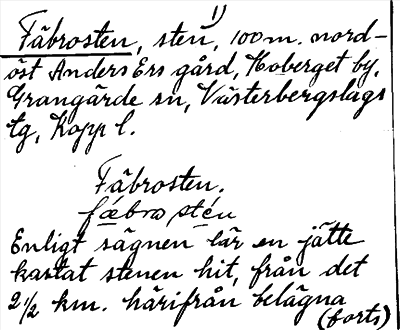 Fäbrosten, sten, 1) 100 m. nord-
öst Anders Ers gård, Hoberget by,
Grangärde sn, Västerbergslags
tg, Kopp l.
Fäbrosten.
fæbro stén
Enligt sägnen lär en jätte
kastat stenen hit, från det
2 1/2 km. härifrån belägna
(forts)